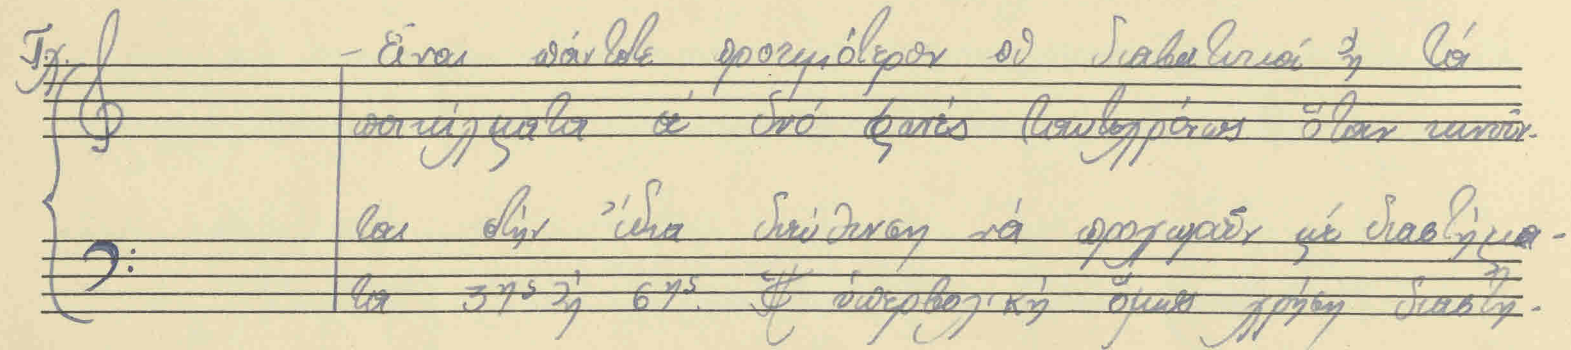 - Εἶναι πάντοτε προτιμότερον οἱ διαβατικοί ἤ τά
ποικίλματα σέ δυό φωνές ταυτοχρόνως ὅταν κινοῦν-
ται στήν ἴδια διεύθυνση νά προχωροῦν μέ διαστήμα-
τα 3ης ἤ 6ης. Ἡ ὑπερβολική ὅμως χρήση διαστη-